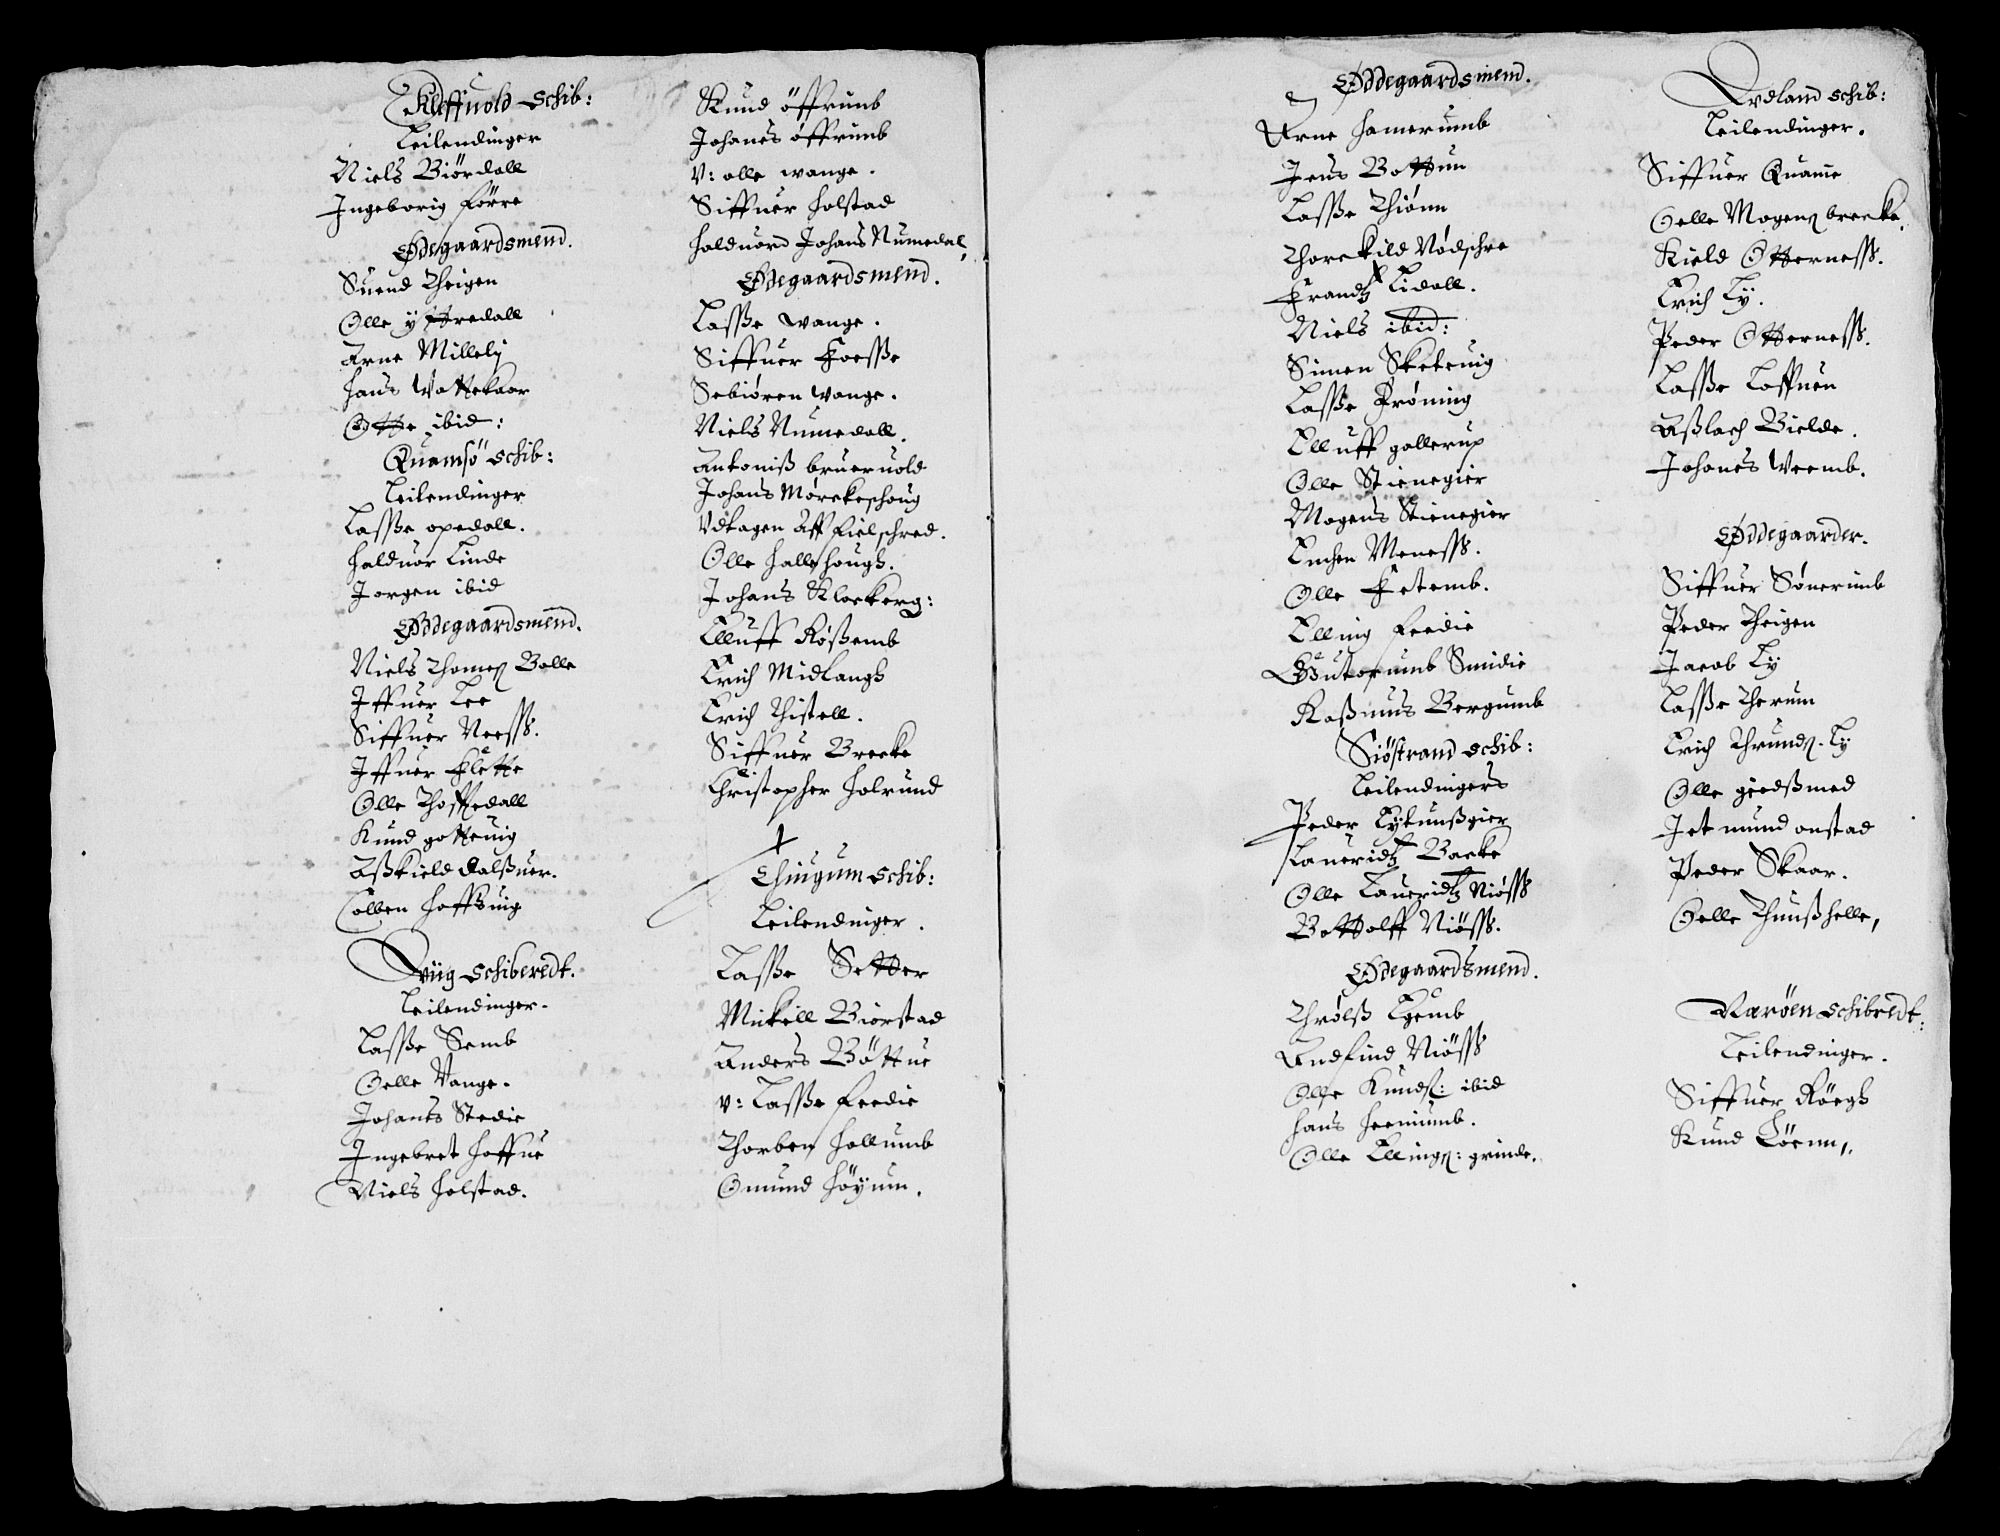 Kleffuold schib:
Leilendinger
Niels Biördall
Ingeborig Förre
Ødegaardsmend.
Suend Theigen
Olle ÿttredall
Arne Millelj
Hans Vattekaar
Otte ibid:
Quamsö schib:
Leilendinger
Lasse opedall.
Halduor Linde
Jorgen ibid
Øddegaardsmend.
Niels Thomeß Balle
Iffuer Lee
Siffuer Neess.
Iffuer Flette
Olle Thoffedall
Knud gottuig
Aßkield
Colben
Vüg schiberedt.
Leilendinger.
Lasse Semb
Oelle Vange.
Johans Stedie
Ingebret Hoffue
Niels Holstad.
Knud öffrimb
Johanes öffrimb
V: olle wange.
Siffuer Holstad
Halduord Johans Numedal,
Ødegaardsmend.
Lasse wange.
Siffuer Foesse
Sebiören wange.
Niels Numedall.
Antoniß brueruold
Johans Mörckeschoug
Vdtagen aff Fielschred.
Olle Hallshough.
Johans Klockerg:
Elluff Rößemb
Erich Midlangh
Erich Thistell.
Siffuer Brecke
Christopher Holrund
Thingum schib:
Leilendinger.
Lasse Setter
Mickell Biörstad
Anders Böttue
v: Lasse Feedie
Thorben Hollumb
Omund Höyum.
Øddegaardsmend.
Arne Hamerumb
Jens Bottun
Lasse Thiönn
Thorckild Nödschre
Frandtz Lidall.
Niels ibid:
Simen Sketeuig
Lasse Fröning
Elluff gallerup
Olle Stienegier
Mogens Stienegier
Meness.
Olle Fetemb.
Elling Feedie
Guttorumb Smidie
Raßmus Bergumb
Siöstrand schib:
Leilendingers
Peder
Lauridtz Backe
Olle Lauridtz Niöss
Bottolff Niöss.
Ødegaardsmend.
Thrölß
Endfind Niöss
Olle Knudß: ibid
Hans
Olle Ellingß: grinde.
Urland schib:
Leilendinger.
Siffuer Quame
Oelle Mogenß brecke.
Kield Otterness.
Erich Ly.
Peder Otterness.
Lasse Loffuen
Aßlach Bielde.
Johanes Weemb.
Øddegaarder.
Siffuer Sönerimb
Peder Theigen
Jacob Ly
Lasse Therum
Erich Thrundß. Ly
Olle giedßmed
Jetmund onstad
Peder Skaar.
Oelle Thunßhelle,
Naröen schibredt:
Leilendinger.
Siffuer Röegh
Knud Löenn,.